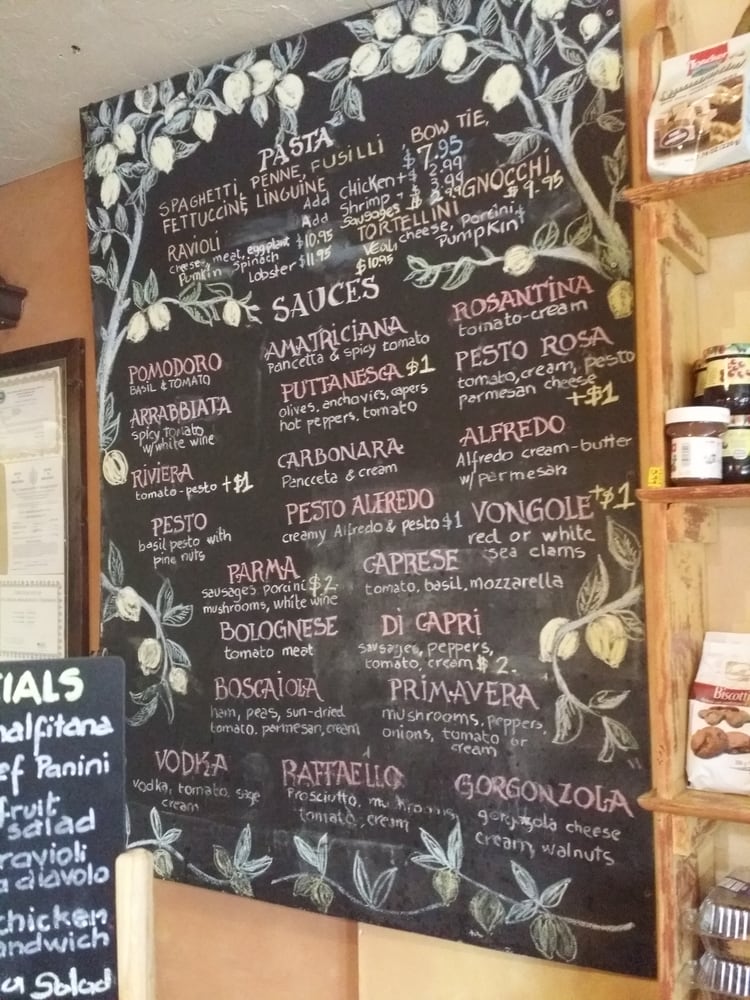 PASTA
SPAGHETTI, PENNE, FUSILLI, BOW TIE,
FETTUCCINE, LINGUINE $7.95
Add chicken + $ 2.99
Add Shrimp + $ 3.99
Sausages $ 2.99
GNOCCHI
$9.95
RAVIOLI
cheese, meat, eggplant $10.95
Pumkin Spinach
Lobster $11.95
TORTELLINI
veal, cheese, porcini,
Pumpkin
$10.95
SAUCES
POMODORO
BASIL & TOMATO
ARRABBIATA
spicy Tomato
w/white wine
RIVIERA
tomato-pesto +$1
PESTO
basil pesto with
pine nuts
AMATRICIANA
Pancetta & spicy tomato
PUTTANESCA $1
olives, anchovies, capers
hot peppers, tomato
CARBONARA
Pancceta & cream
PESTO ALFREDO
creamy Alfredo & pesto $1
ROSANTINA
tomato-cream
PESTO ROSA
tomato, cream, pesto
parmesan cheese
+$1
ALFREDO
Alfredo cream-butter
w/parmesan
VONGOLE +$1
red or white
sea clams
PARMA
sausages porcini $2.
mushrooms, white wine
CAPRESE
tomato, basil, mozzarella
BOLOGNESE
tomato meat
DI CAPRI
sausages, peppers,
tomato, cream $2.
BOSCAIOLA
ham, peas, sun-dried
tomato, parmesan, cream
PRIMAVERA
mushrooms, peppers,
onions, tomato or
cream
VODKA
vodka, tomato, sage
cream
RAFFAELLO
Prosciutto, mushrooms
tomato, cream
GORGONZOLA
gorgogola cheese
cream, walnuts
IALS
nalfitana
ef Panini
fruit
salad
ravioli
a diavolo
chicken
andwich
a Salad
Loacker
Biscotti